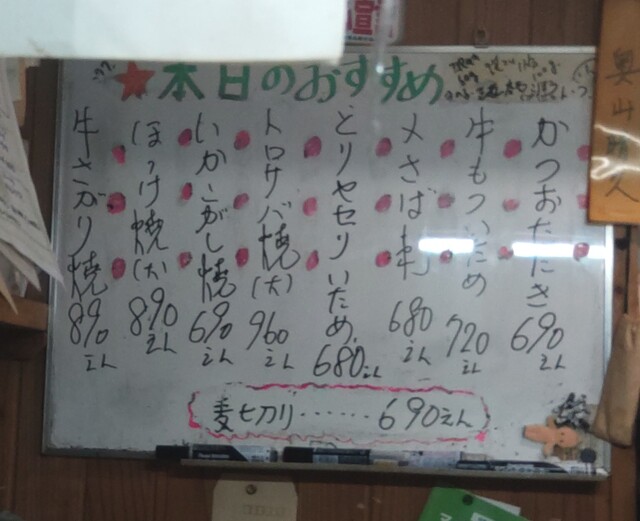 ★本日のおすすめ
かつおたたき 690えん
牛もついため 720えん
〆さば刺 680えん
とりヤセリいため 680えん
トロサバ焼(大) 960えん
いかこがし焼 690えん
ほっけ焼(大) 890えん
牛さがり焼 890えん
麦切り……690えん